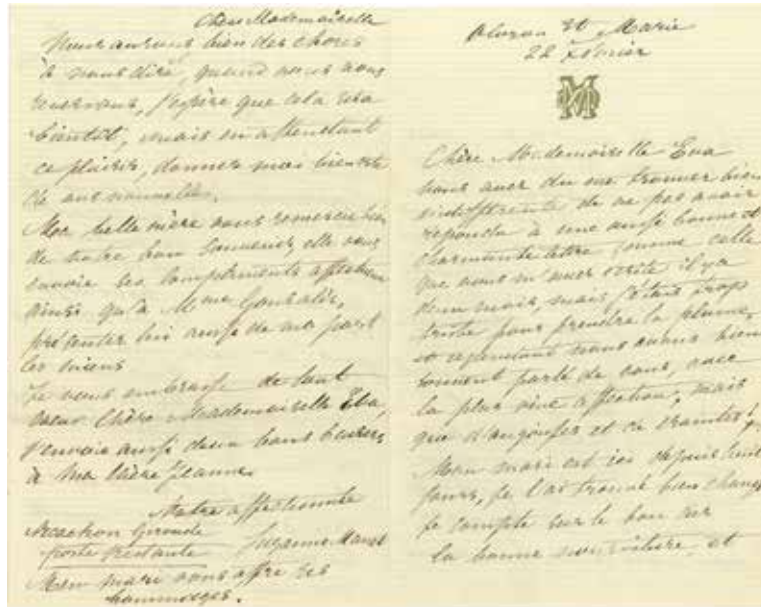 Chère Mademoiselle
Nous aurons bien des choses
à nous dire, quand nous nous
reverrons, j'espère que cela sera
bientôt, mais en attendant
ce plaisir, donnez moi bien vite
de vos nouvelles.
Ma belle mère vous remercie bien
de votre bon souvenir, elle vous
envoie ses compliments affectueux
ainsi qu'à Mme Gonzalès,
présentez lui aussi de ma part
les miens
Je vous embrasse de tout
cœur Chère Mademoiselle Eva,
j'envoie aussi deux bons baisers
à ma chère Jeanne.
Votre affectionnée
Arcachon Gironde
poste restante Suzanne Manet
Mon mari vous offre ses
hommages.
Oloron Ste Marie
22 Février
Chère Mademoiselle Eva
vous avez du me trouver bien
indifférente de ne pas avoir
répondu à une aussi bonne et
charmante lettre comme celle
que vous m'avez écrite il y a
deux mois, mais j'étais trop
triste pour prendre la plume,
et cependant nous avons bien
souvent parlé de vous, avec
la plus vive affection, mais
que d'angoisses et de craintes!
Mon mari est ici depuis huit
jours, je l'ai trouvé bien changé
je compte sur le bon air
la bonne nourriture, et